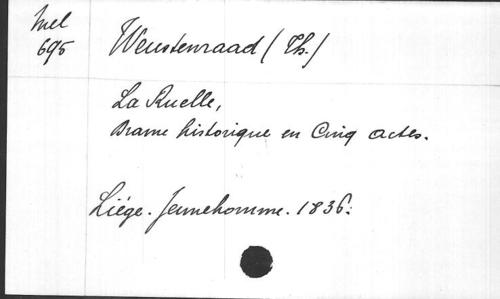 Mel
695
Weustenraad (Th.)
La Ruelle,
Drame historique en Cinq actes.
Liége. Jeunehomme. 1836.